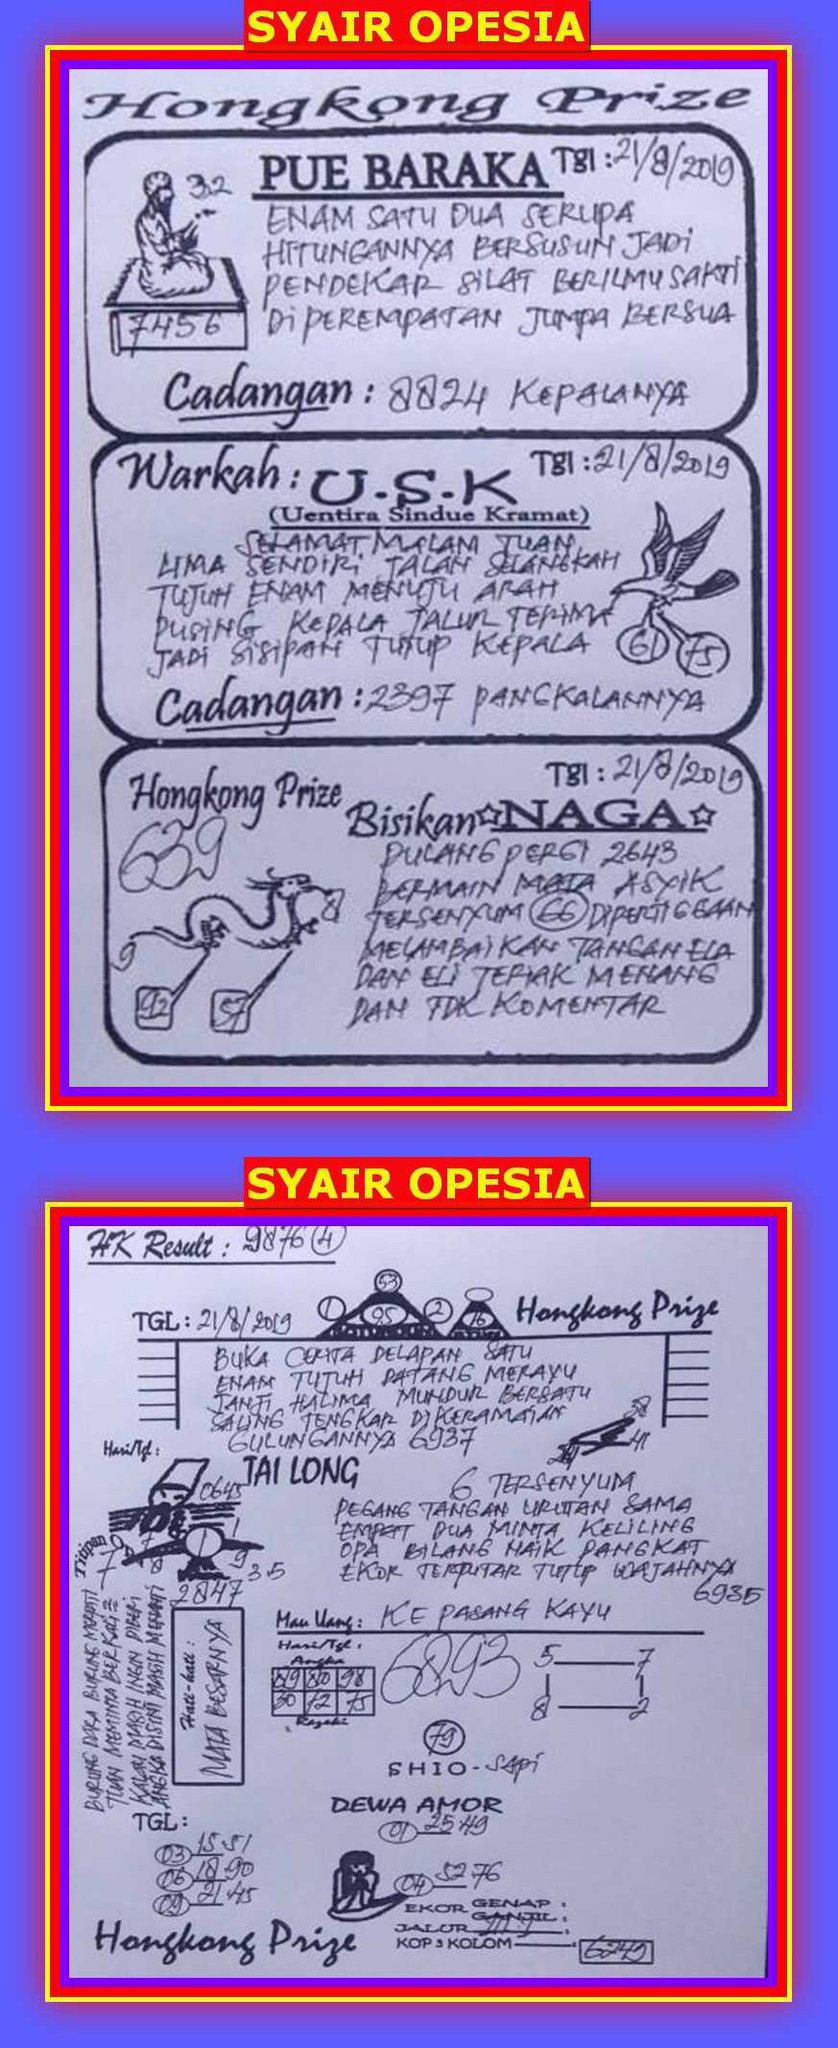 SYAIR OPESIA
Hongkong Prize
PUE BARAKA Tgl : 21/8/2019
3.2
ENAM SATU DUA SERUPA
HITUNGANNYA BERSUSUN JADI
PENDEKAR SILAT BERILMU SAKTI
DI PEREMPATAN JUMPA BERSUA
7456
Cadangan : 8824 KEPALANYA
Warkah : U.S.K Tgl : 21/8/2019
(Uentira Sindue Kramat)
SELAMAT MALAM TUAN
LIMA SENDIRI JALAN SELANGKAH
TUJUH ENAM MENUJU ARAH
PUSING KEPALA JALUR TERIMA
JADI SISIPAN TUTUP KEPALA
61 75
Cadangan : 2397 PANGKALANNYA
Tgl : 21/8/2019
Hongkong Prize
Bisikan NAGA
639
PULANG PERGI 2643
BERMAIN MATA ASYIK
TERSENYUM 66 DIPERTIGAAN
MELAMBAIKAN TANGAN ELA
DAN ELI TERIAK MENANG
DAN TDK KOMENTAR
8
9
92 57
SYAIR OPESIA
HK Result : 9876 4
53
1 95 2 76
TGL : 21/8/2019
Hongkong Prize
BUKA CERITA DELAPAN SATU
ENAM TUJUH DATANG MERAYU
JANTI HALIMA MUNDUR BERSATU
SALING TENGKAR DI KERAMAIAN
GULUNGANNYA 6937
38
41
Hari/Tgl :
TAI LONG
0645
6 TERSENYUM
PEGANG TANGAN URUTAN SAMA
EMPAT DUA MINTA KELILING
OPA BILANG NAIK PANGKAT
EKOR TERPUTAR TUTUP WAJAHNYA
6935
Titipan
7
1
9
3.5
2847
BURUNG DARA BURUNG MERPATI
TUAN MEMINTA BERKALI2
KALAU MASIH INGIN DIBERI
ANGKA DISINI MASIH MENANTI
Hati-hati :
MATA BESARNYA
Mau Uang : KE PASANG KAYU
Hari/Tgl :
Angka
89 80 98
30 12 75
Rezeki
6893
5 7
8 2
79
SHIO - SAPI
DEWA AMOR
01 2549
04 5276
TGL :
03 1551
06 1890
09 2145
EKOR GENAP :
GANJIL :
JALUR :
KOP 3 KOLOM : 6249
Hongkong Prize